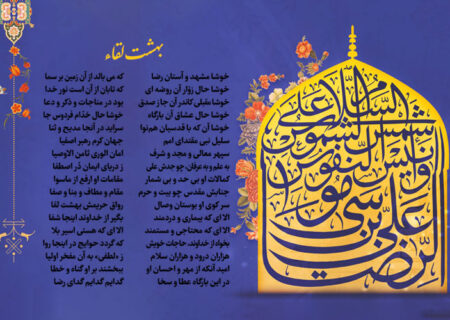 بهشت لقاء
خوشا مشهد و آستان رضا که می بالد از آن زمین بر سما
خوشا حال زوّار آن روضه ای که تابان از آن است نور خدا
خوشا مقبلی کاندر آن جا ز صدق بود در مناجات و ذکر و دعا
خوشا حال عشاق آن بارگاه خوشا حال خدام فردوس جا
خوشا آن که با قدسیان هم‌نوا سراید در آنجا مدیح و ثنا
سلیل نبی مقتدای امم جهان کرم رهبر اصفیا
سپهر معالی و مجد و شرف امان الوری ثامن الاوصیا
به علم و به عرفان، چو جدش علی ز دریای ایمان دُر اصطفا
کمالات او بی حد و بی شمار مقامات او ارفع از ماسوا
جنابش مقدس چو بیت و حرم مقام و مطاف و منا و صفا
سر کوی او بوستان وصال رواق حریمش بهشت لقا
الا ای که بیماری و دردمند بگیر از خداوند اینجا شفا
الا ای که محتاجی و مستمند الا ای که هستی اسیر بلا
بخواه از خداوند، حاجات خویش که گردد حوایج در اینجا روا
هزاران درود و هزاران سلام ز «لطفی» به آن مفخر اولیا
امید آنکه از مهر و احسان او ببخشند بر او گناه و خطا
در این بارگاه عطا و سخا گدایم گدایم گدای رضا
السلام علی
شمس الشموس
و انیس النفوس
علی بن موسی
الرضا